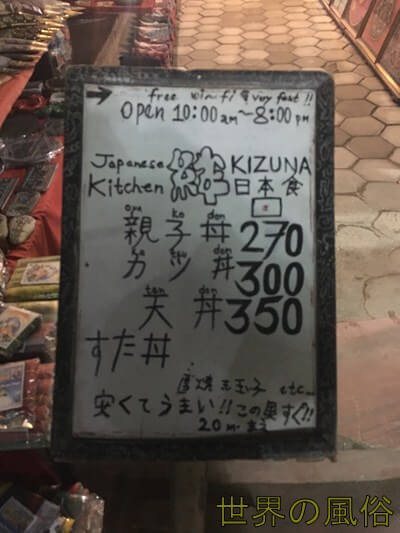 → free wi-fi very fast!!
open 10:00 am~8:00 pm
Japanese Kitchen 絆 KIZUNA 日本食
oya ko don
親子丼 270
ka tsu don
カツ丼 300
ten don
天丼 350
すた丼
玉子 etc...
安くてうまい!! この奥すぐ!!
20m
世界の風俗